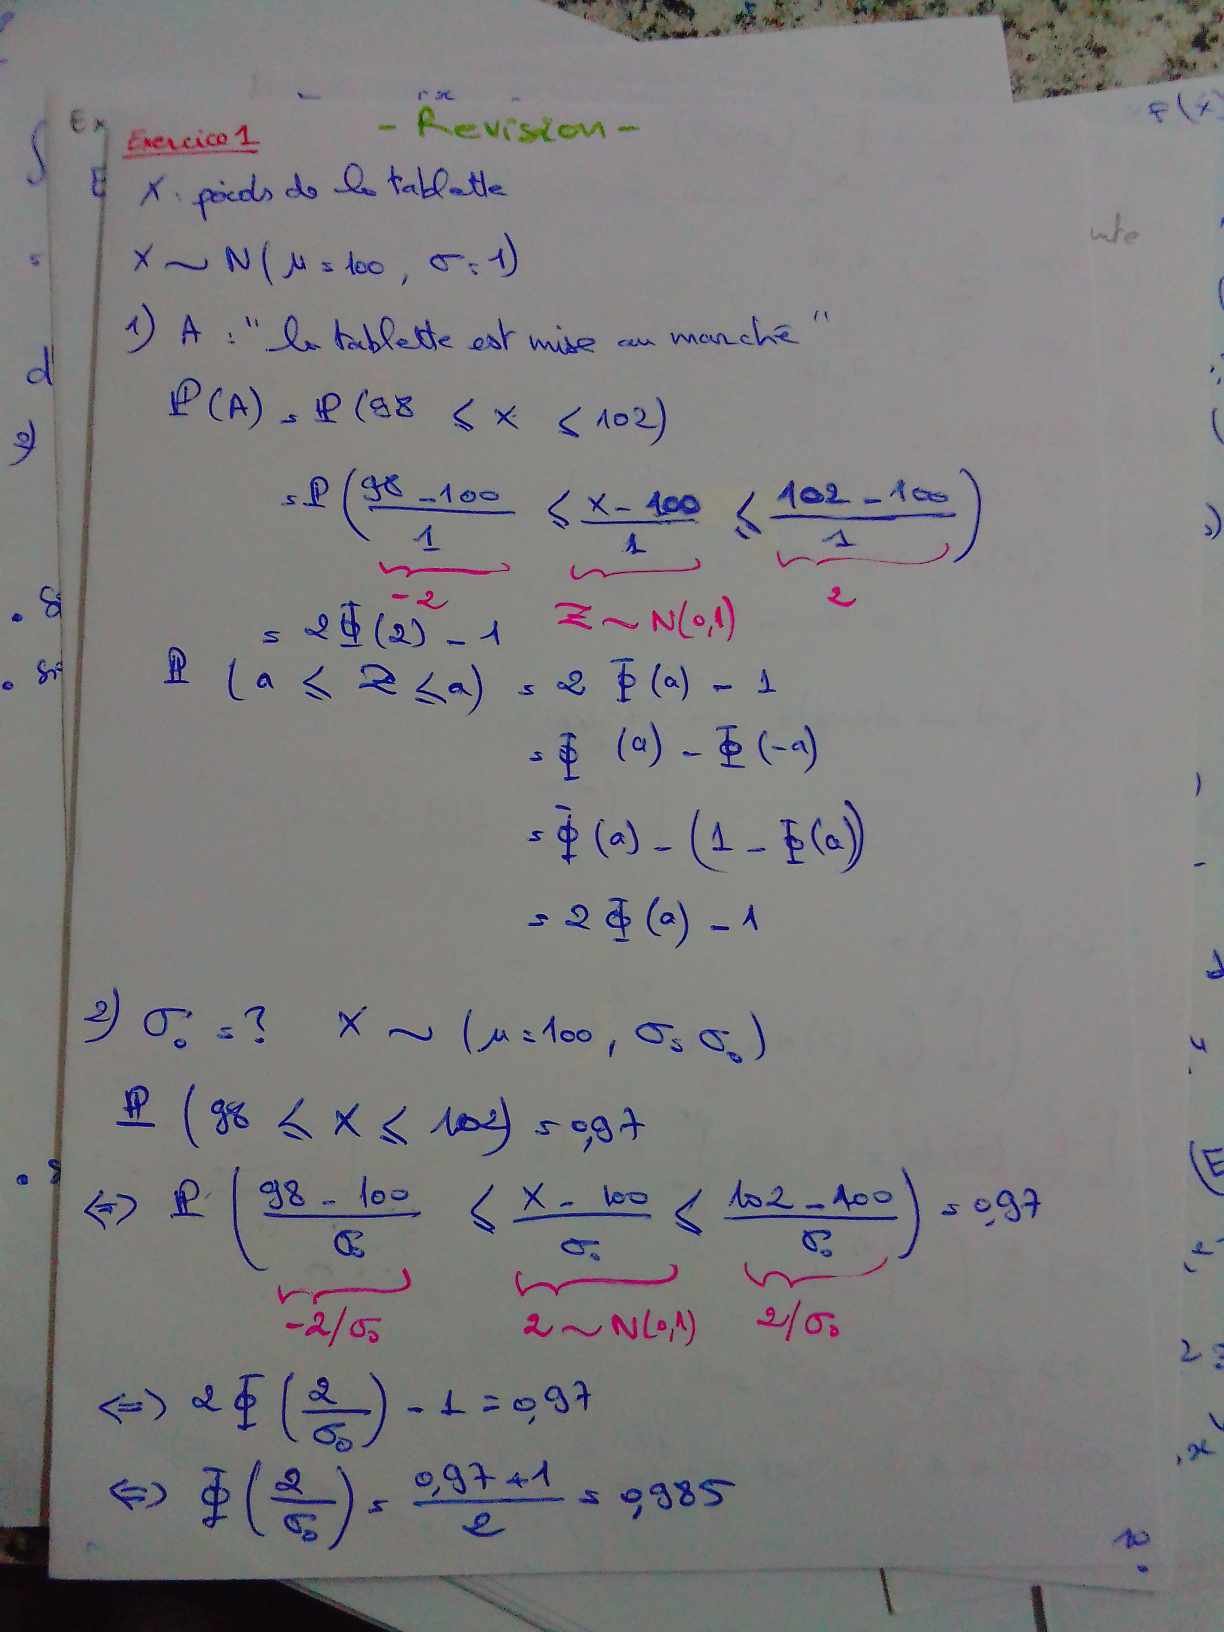 - Revision -
Exercice 1
X : poids de la tablette
X ~ N(μ = 100, σ = 1)
1) A : "la tablette est mise au marché"
ℙ(A) = ℙ(98 ≤ X ≤ 102)
= ℙ((98 - 100)/1 ≤ (X - 100)/1 ≤ (102 - 100)/1)
-2 Z ~ N(0,1) 2
= 2Φ(2) - 1
ℙ (a ≤ Z ≤ a) = 2 Φ(a) - 1
= Φ (a) - Φ(-a)
= Φ(a) - (1 - Φ(a))
= 2 Φ(a) - 1
2) σ₀ = ? X ~ (μ = 100, σ = σ₀)
ℙ (98 ≤ X ≤ 102) = 0,97
⇔ ℙ ((98 - 100)/σ₀ ≤ (X - 100)/σ₀ ≤ (102 - 100)/σ₀) = 0,97
-2/σ₀ Z ~ N(0,1) 2/σ₀
⇔ 2 Φ(2/σ₀) - 1 = 0,97
⇔ Φ(2/σ₀) = (0,97 + 1)/2 = 0,985